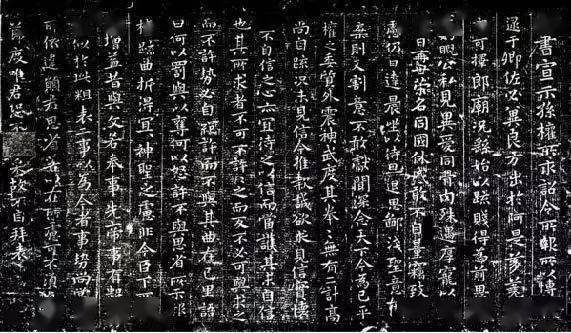 書宣示孫權所求詔令所報所以博
逮于卿佐必冀良方出於阿是芻蕘
可擇郎廟況繇始以疏賤得為前恩
公私見異愛同骨肉殊遇厚寵以
日再世榮名同國休慼敢不自量竊致
慮仍日達晨坐以待旦退思鄙淺聖意
棄則又割意不敢獻聞深念天下今為已平
權之委質外震神武度其拳〻無有二計高
尚自疏況未見信今推款誠欲求見信實懷
不自信之心亦宜待之以信而當護其未自信
也其所求者不可不許許之而反不必可與求之
而不許勢必自絕許而不與其曲在己里語
曰何以罰與以奪何以怒許不與思省所示
疏曲折得宜宜神聖之慮非今臣下
增益昔與文若奉事先帝事有數
似於此粗表二事以為今者事勢尚
所依違願君思省若以在所慮可不須
節度唯君恐采故不自拜表